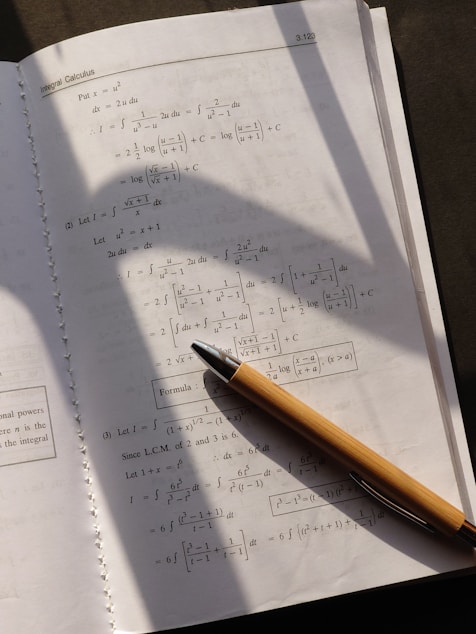 Integral Calculus 3.123
Put x = u²
dx = 2u du
∴ I = ∫ 1/(u³ − u) 2u du = ∫ 2/(u² − 1) du
= 2 1/2 log((u − 1)/(u + 1)) + C = log((u − 1)/(u + 1)) + C
= log((√x − 1)/(√x + 1)) + C
(2) Let I = ∫ √(x + 1)/x dx
Let u² = x + 1
2u du = dx
∴ I = ∫ u/(u² − 1) 2u du = ∫ 2u²/(u² − 1) du
= 2 ∫ [(u² − 1)/(u² − 1) + 1/(u² − 1)] du = 2 ∫ [1 + 1/(u² − 1)] du
= 2 [∫ du + ∫ 1/(u² − 1) du] = 2 [u + 1/2 log((u − 1)/(u + 1))] + C
= 2 √x [(√(x+1) − 1)/(√(x+1) + 1)] + C
Formula : 1/2a log((x − a)/(x + a)), (x > a)
(3) Let I = ∫ 1/((1 + x)^1/2 − (1 + x)^1/3)
Since L.C.M. of 2 and 3 is 6.
Let 1 + x = t⁶ ∴ dx = 6t⁵ dt
I = ∫ 6t⁵/(t³ − t²) dt = ∫ 6t⁵/(t²(t − 1)) dt = ∫ 6t³/(t − 1)
t³ − 1³ = (t − 1)(t²
= 6 ∫ (t³ − 1 + 1)/(t − 1) dt
= 6 ∫ [(t³ − 1)/(t − 1) + 1/(t − 1)] dt = 6 ∫ ((t² + t + 1) + 1/(t − 1)) dt
onal powers
ere n is the
s the integral